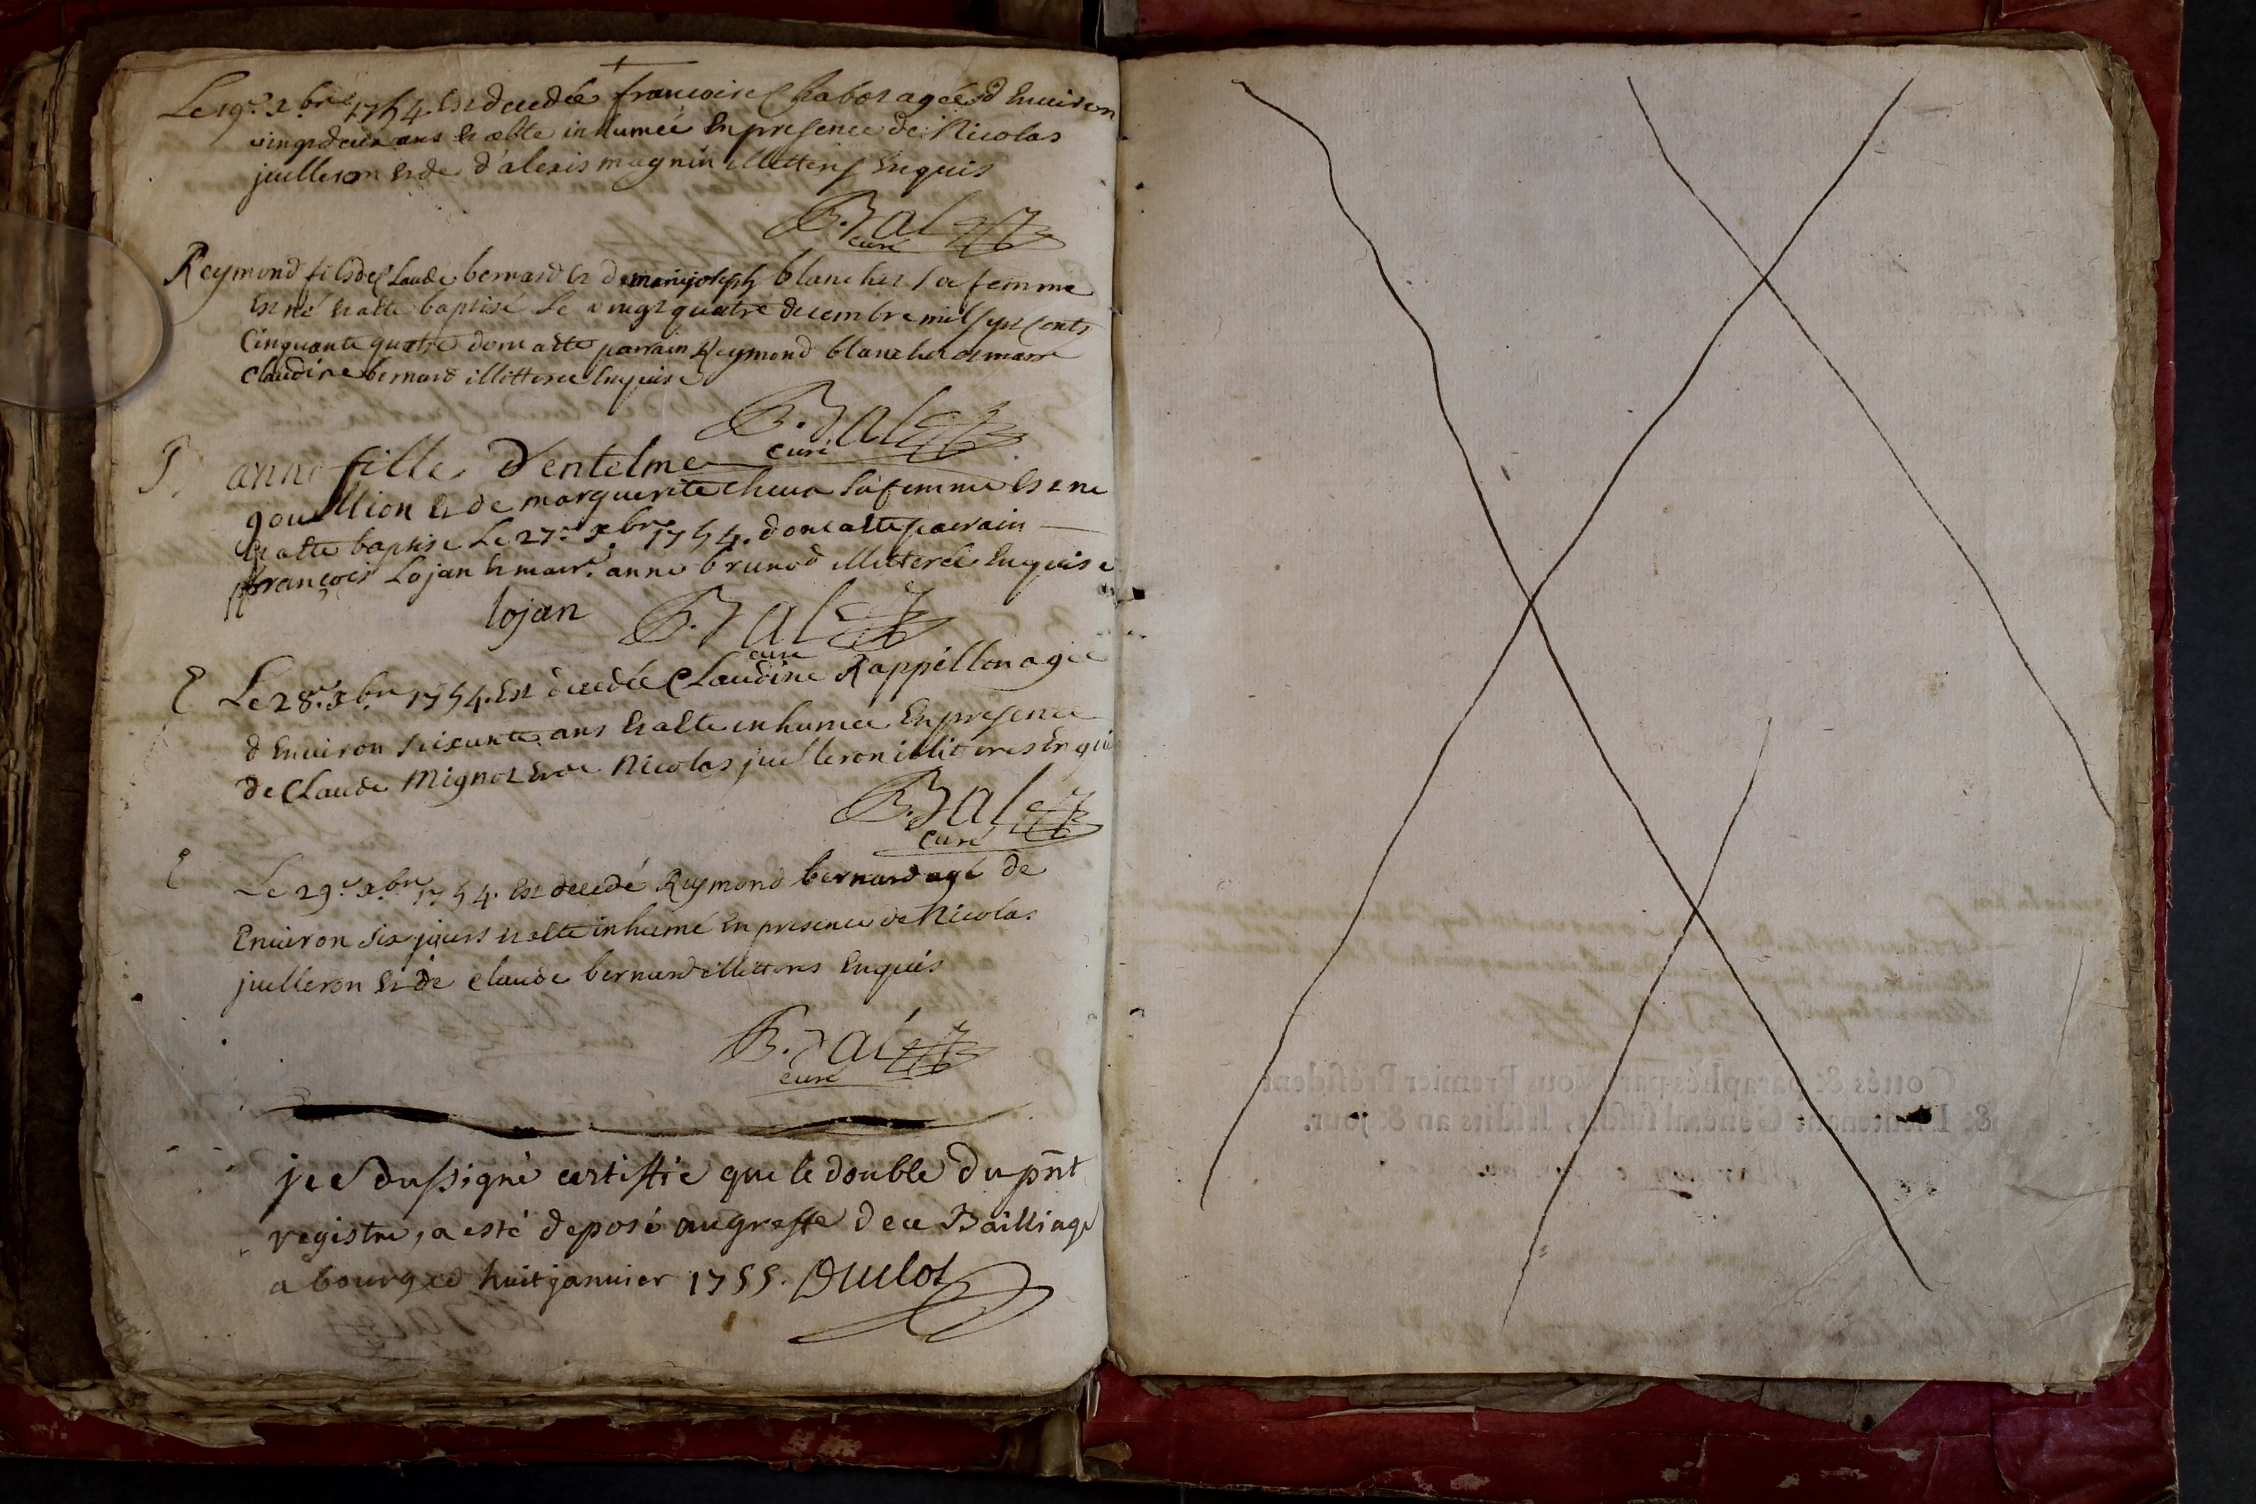 Le 19.e xbre 1754. Est decedée francoise Chabot agée d'Environ
vingtdeux ans Et a esté inhumeé En presence de Nicolas
juilleron Et de d'alexis magnin illetters Enquis
B.
curé
Reymond fils de Claude bernard Et de marie joseph blanchet sa femme
Est né Et a esté baptisé Le vingt quatre decembre mil sept Cents
Cinquante quatre dont a esté parrain Reymond blanchet et marr
Claudine bernard illitteree Enquise
B.
curé
anne fille d'entelme
gouillion Et de marguerite cheva sa femme Est né
Et a esté baptisé Le 27.e xbre 1754. dont a esté parrain
françois Lojan Et marr.e anne brunod illitereé Enquise
lojan B.
curé
Le 28.e xbre 1754. Est decedée Claudine Rappillon agée
d'Environ soixante ans Et a esté inhumée En presence
de Claude Mignot Et de Nicolas juilleron illitteres Enquis
B.
curé
Le 29.e xbre 1754. Est decedé Reymond bernard agé de
Environ six jours Et a esté inhumé En presence de Nicolas
juilleron Et de Claude bernard illitteres Enquis
B.
curé
je soussigné certiffie que le double du pñt
registre, a esté deposé au greffe de ce Bailliage
a bourg ce huit janvier 1755. Duclot